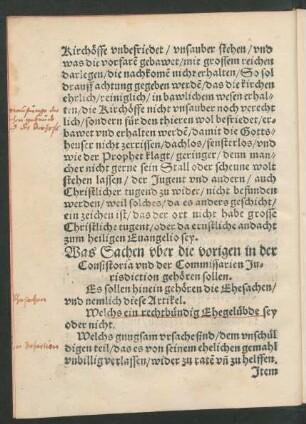 Kirchöffe vnbefriedet / vnsauber stehen / vnd
was die vorfarē gebawet / mit grossem reichen
darlegen / die nachkomē nicht erhalten / So sol
drauff achtung gegeben werdē / das die kirchen
ehrlich / reiniglich / in bawlichen wesen erhal-
ten / die Kirchöffe nicht vnsauber noch verecht
lich / sondern für den thieren wol befriedet / er-
bawet vnd erhalten werdē / damit die Gotts-
heuser nicht zerrissen / dachlos / fensterlos / vnd
wie der Prophet klagt / geringer / denn man-
cher nicht gerne sein Stall oder schewne wolt
stehen lassen / der Jugent vnd andern / auch
Christlicher tugend zu wider / nicht befunden
werden / weil solches / da es anders geschicht /
ein zeichen ist / das der ort nicht habe grosse
Christliche tugent / oder da ernstliche andacht
zum heiligen Euangelio sey.
Was Sachen vber die vorigen in der
Consistoria vnd der Commissarien Ju-
risdiction gehören sollen.
Es sollen hinein gehören die Ehesachen /
vnd nemlich diese Artikel.
Welchs ein rechtbündig Ehegelübde sey
oder nicht.
Welchs gnugsam vrsache sind / dem vnschül
digen teil / das es von seinem ehelichen gemahl
vnbillig verlassen / wider zu ratē vn̄ zu helffen.
Item